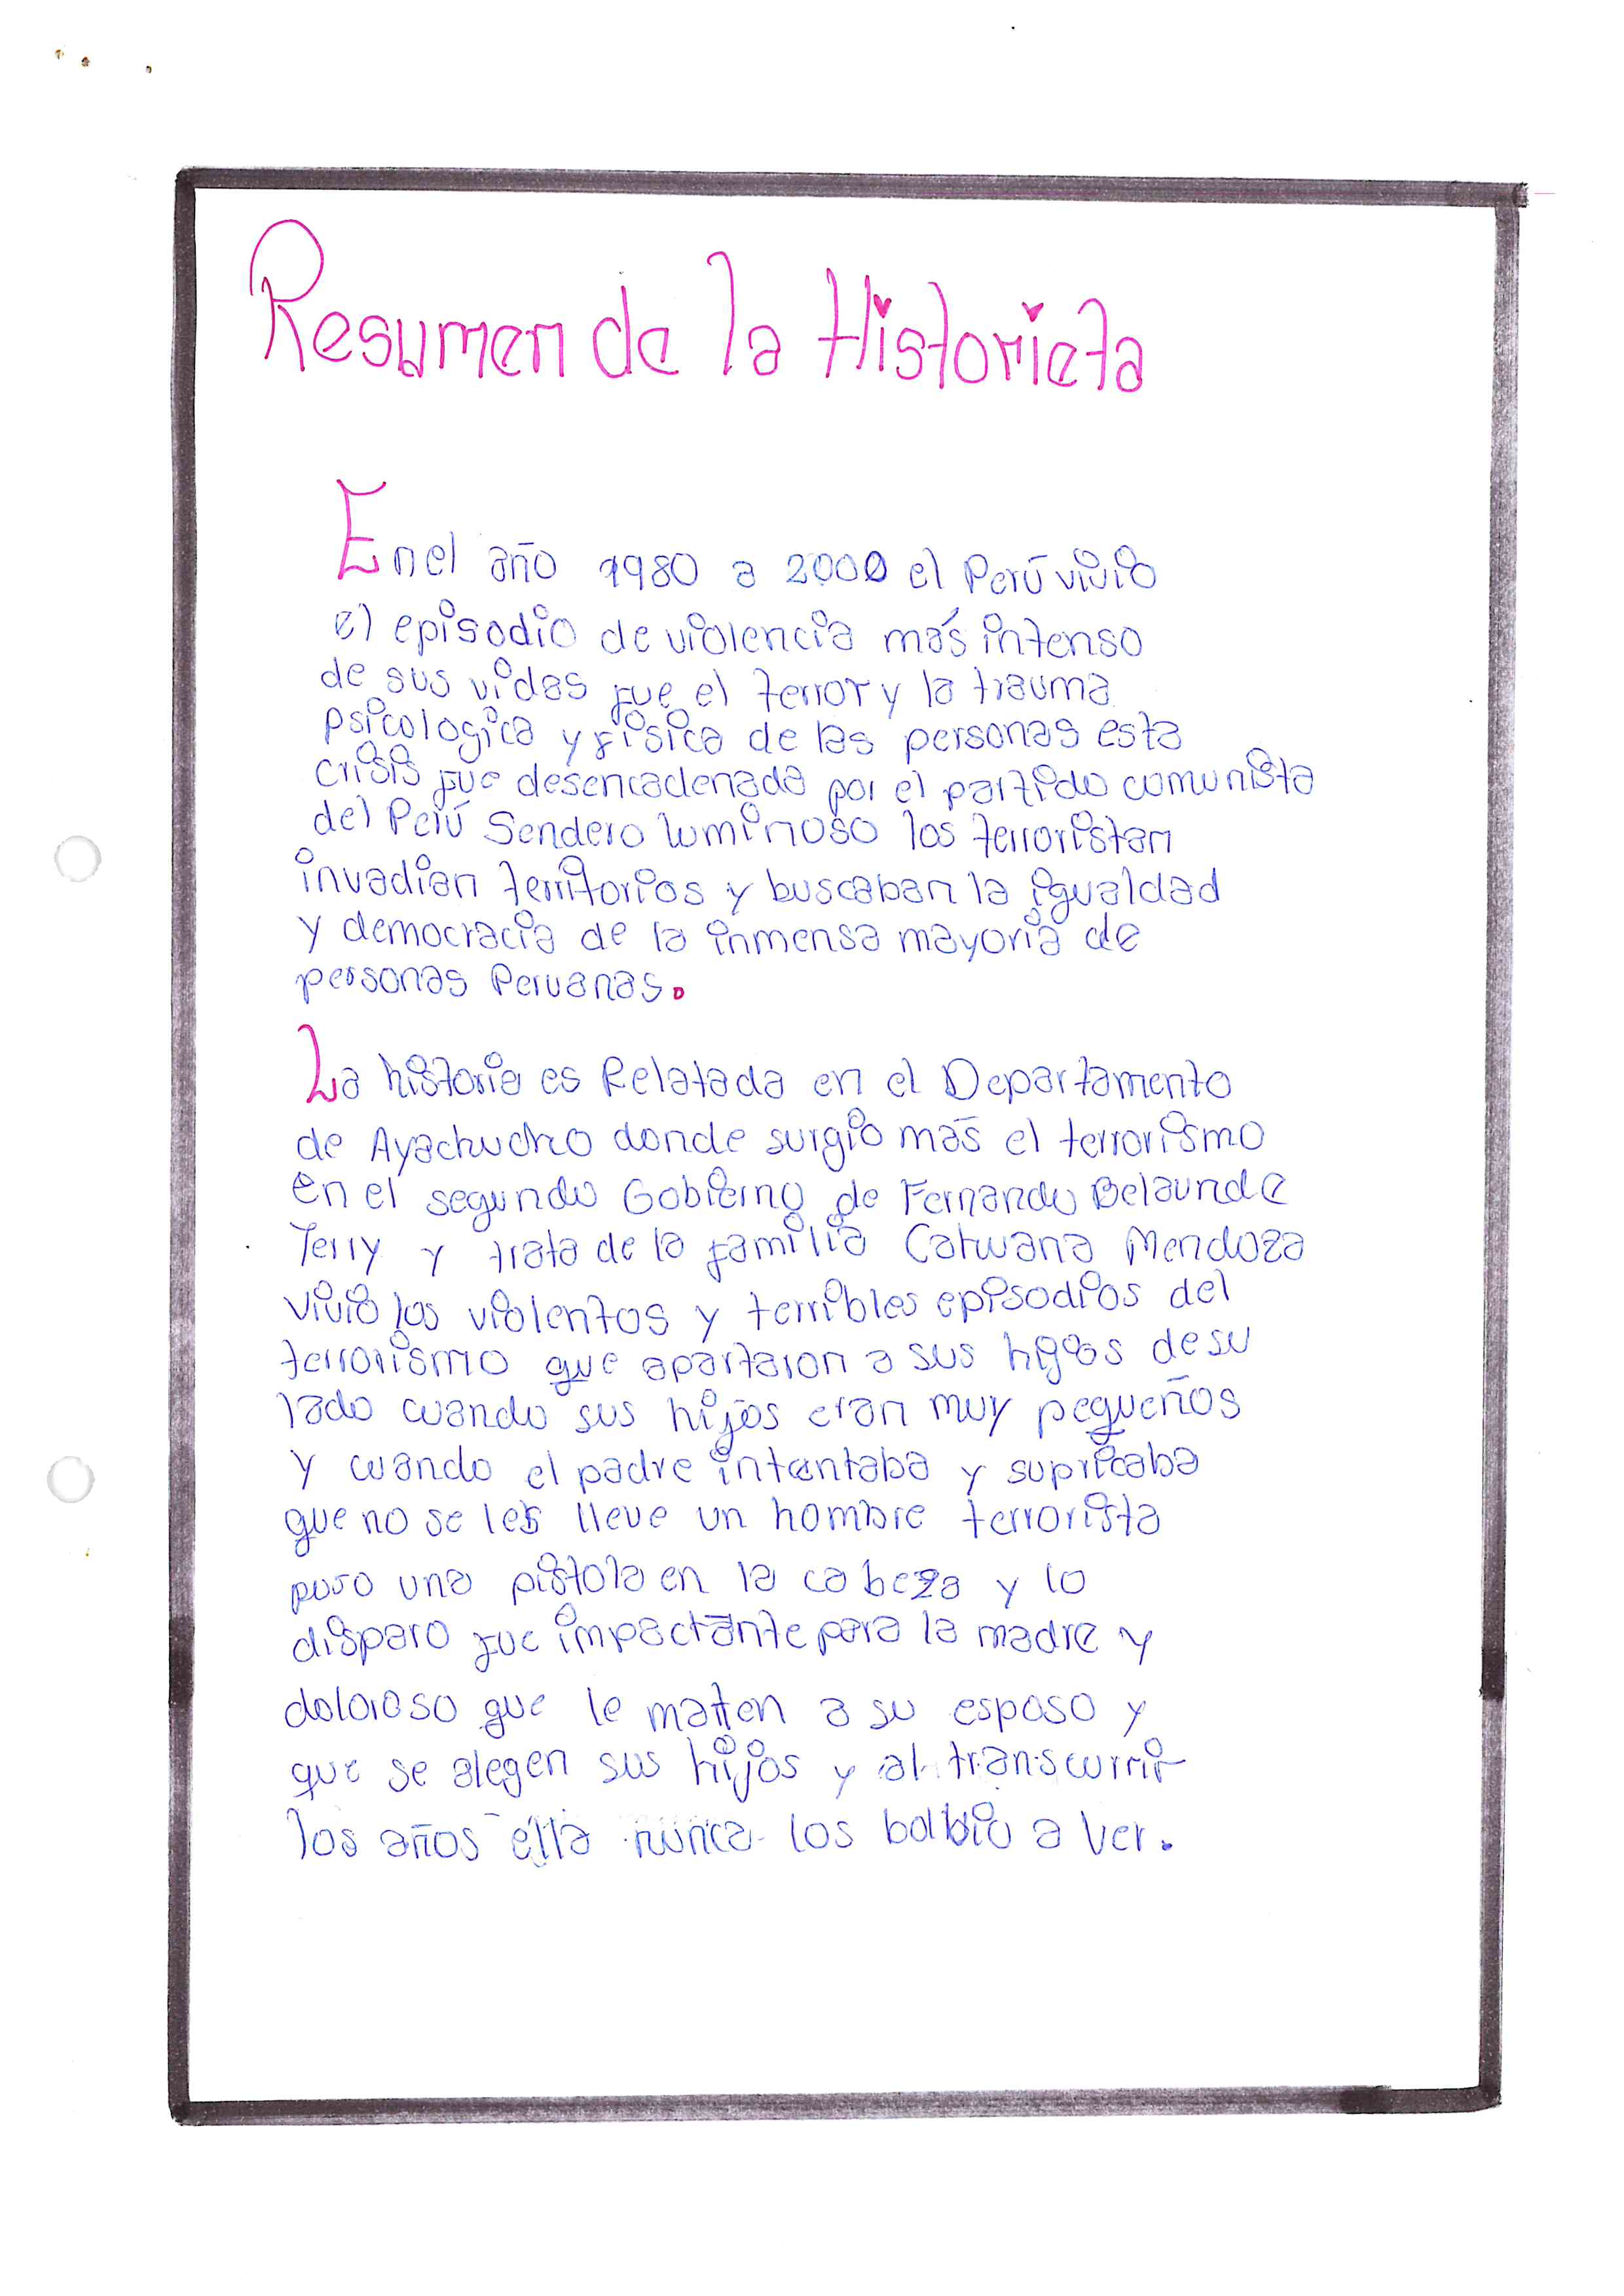 Resumen de la Historieta
En el año 1980 a 2000 el Perú vivio
el episodio de violencia más intenso
de sus vidas fue el terror y la trauma
psicologica y fisica de las personas esta
crisis fue desencadenada por el partido comunista
del Perú Sendero luminoso los terroristan
invadian territorios y buscaban la igualdad
y democracia de la inmensa mayoria de
personas Peruanas.
La historia es Relatada en el Departamento
de Ayachucho donde surgio más el terrorismo
en el segundo Gobierno de Fernando Belaunde
Terry y trata de la familia Catwana Mendoza
vivio los violentos y terribles episodios del
terrorismo que apartaron a sus hijos de su
lado cuando sus hijos eran muy pequeños
y cuando el padre intentaba y supricaba
que no se les lleve un hombre terrorista
puso una pistola en la cabeza y lo
disparo fue impactante para la madre y
doloroso que le maten a su esposo y
que se alegen sus hijos y al transcurrir
los años ella nunca los bolbio a ver.